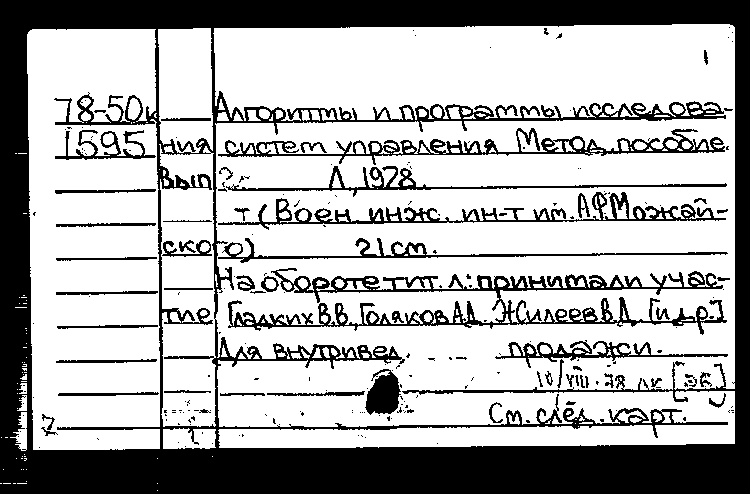 1
78-50к Алгоритмы и программы исследова-
1595 ния систем управления Метод. пособие.
Вып 2. Л., 1978.
т (Воен. инж. ин-т им. А.Ф.Можай-
ского). 21 см.
На обороте тит. л: принимали учас-
тие Гладких В.В., Голяков А.Д., Жилеев В.Д. [и др.]
Для внутривед. продажи.
10/VIII-78 ЛК
См. след. карт.